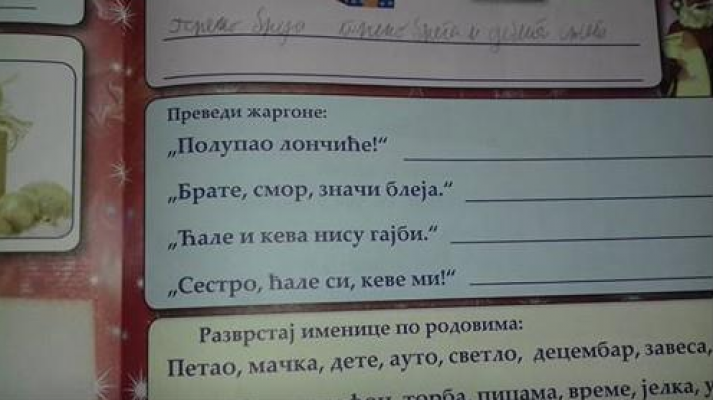 преко брда преко брега и дебелог снега
Преведи жаргоне:
„Полупао лончиће!“
„Брате, смор, значи блеја.“
„Ћале и кева нису гајби.“
„Сестро, ћале си, кеве ми!“
Разврстај именице по родовима:
Петао, мачка, дете, ауто, светло, децембар, завеса,
торба, пиџама, време, јелка,